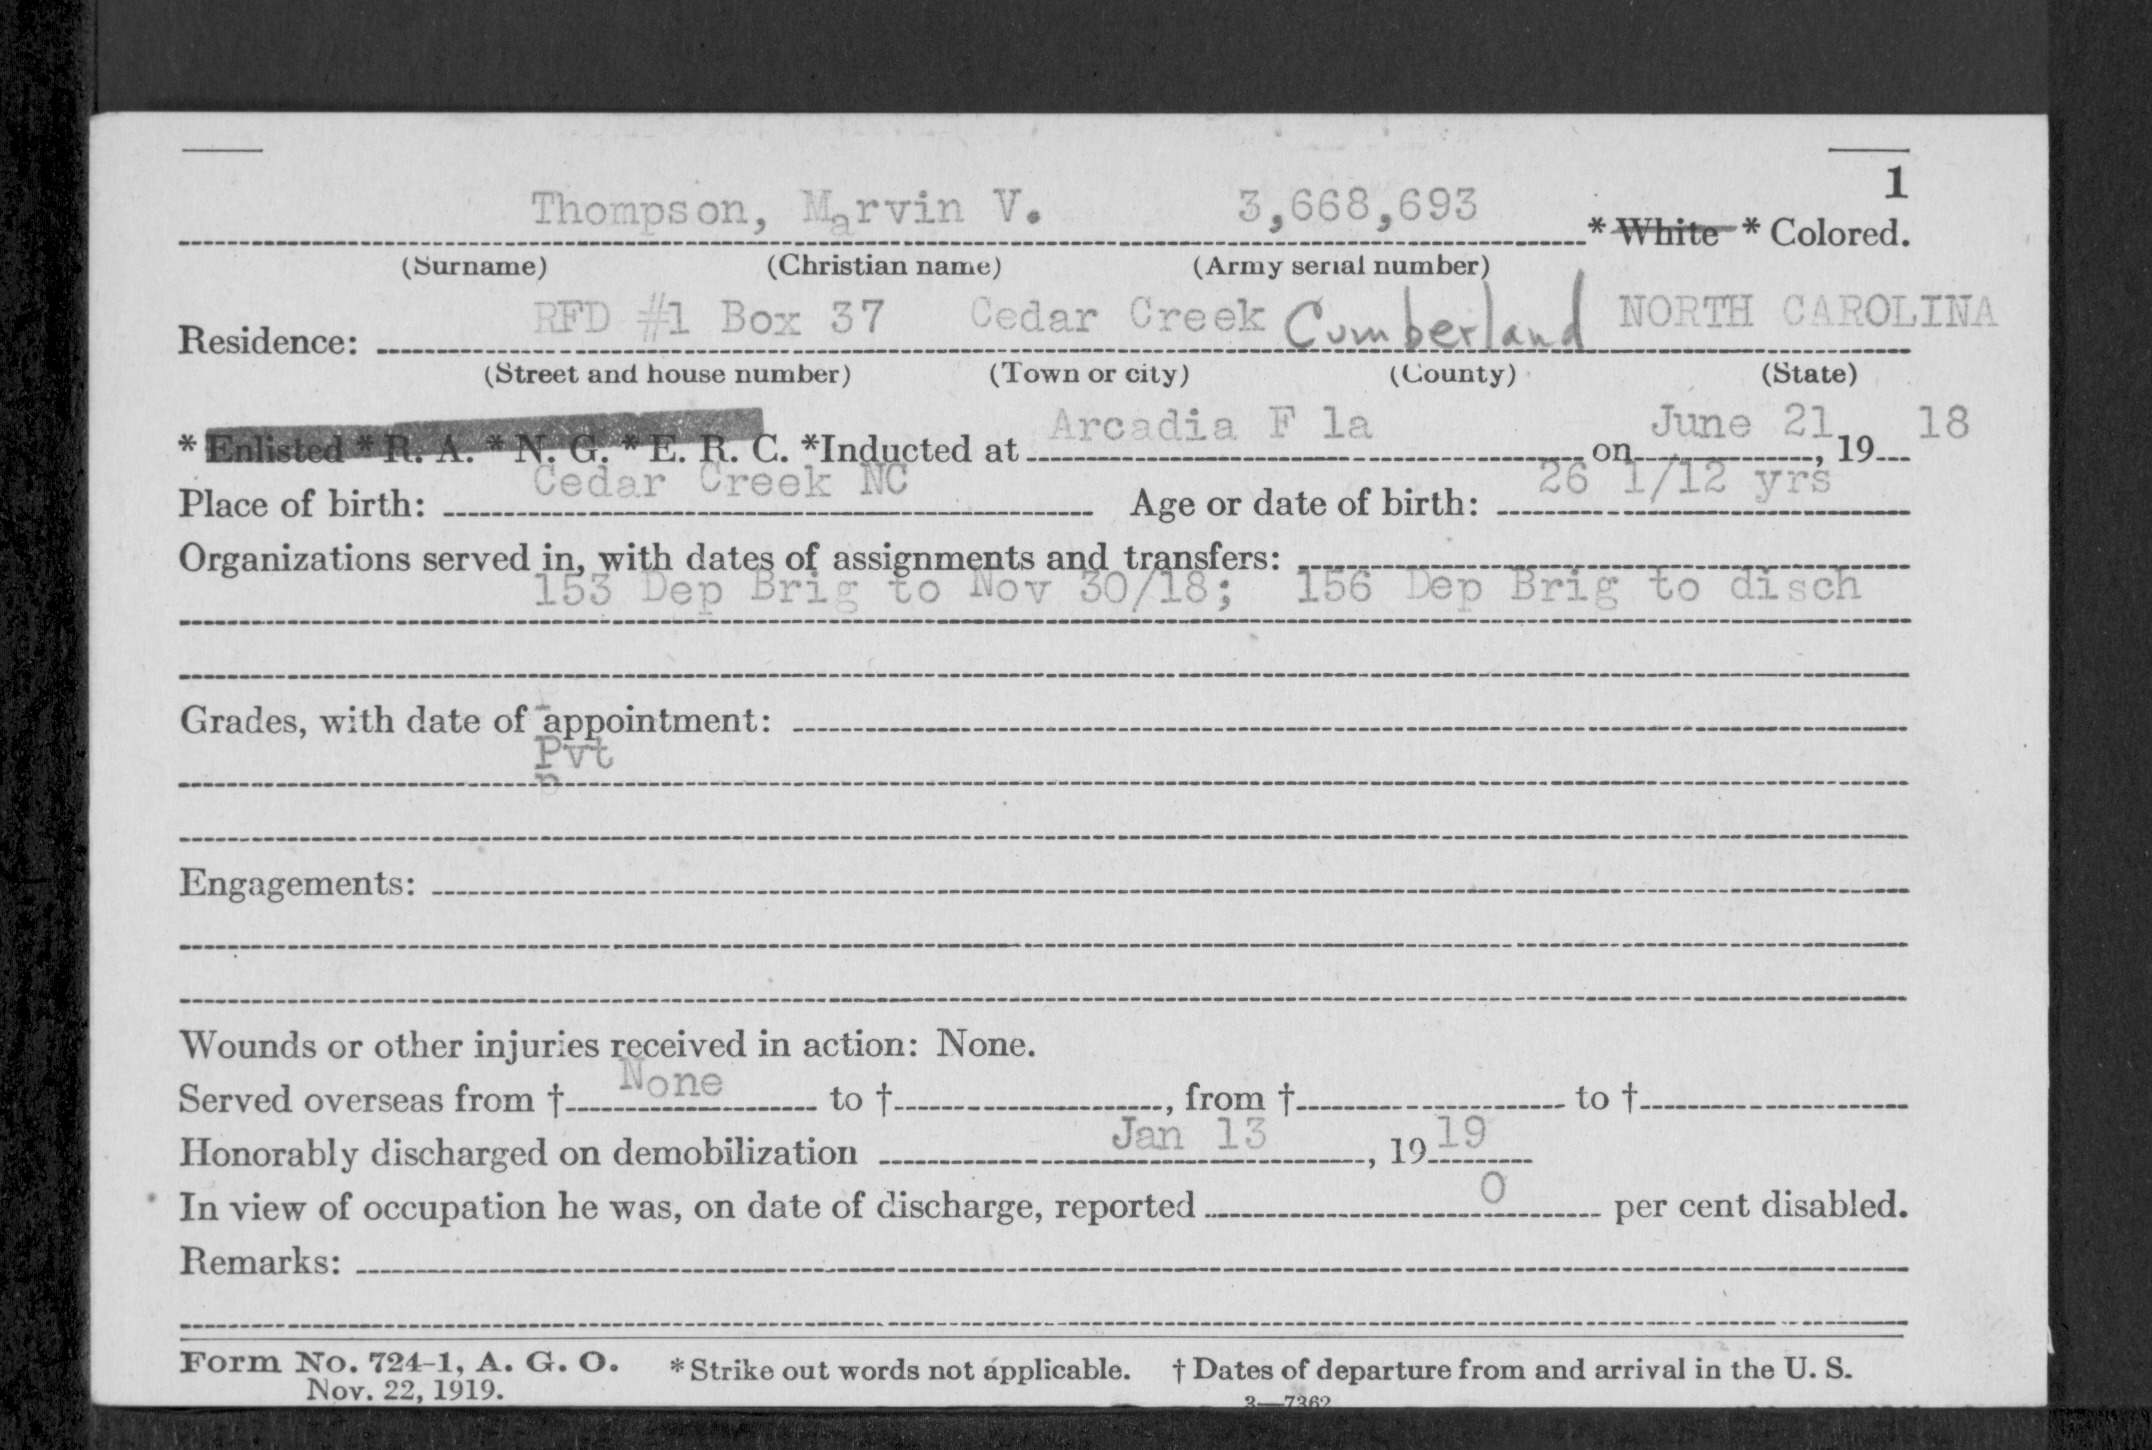 1
Thompson, Marvin V. 3,668,693 * White * Colored.
(Surname) (Christian name) (Army serial number)
Residence: RFD #1 Box 37 Cedar Creek Cumberland NORTH CAROLINA
(Street and house number) (Town or city) (County) (State)
* Enlisted * R. A. * N. G. * E. R. C. *Inducted at Arcadia F la on June 21, 19 18
Place of birth: Cedar Creek NC Age or date of birth: 26 1/12 yrs
Organizations served in, with dates of assignments and transfers:
153 Dep Brig to Nov 30/18; 156 Dep Brig to disch
Grades, with date of appointment:
Pvt
Engagements:
Wounds or other injuries received in action: None.
Served overseas from † None to †, from † to †
Honorably discharged on demobilization Jan 13, 19 19
In view of occupation he was, on date of discharge, reported 0 per cent disabled.
Remarks:
Form No. 724-1, A. G. O. * Strike out words not applicable. † Dates of departure from and arrival in the U. S.
Nov. 22, 1919. 3—7362